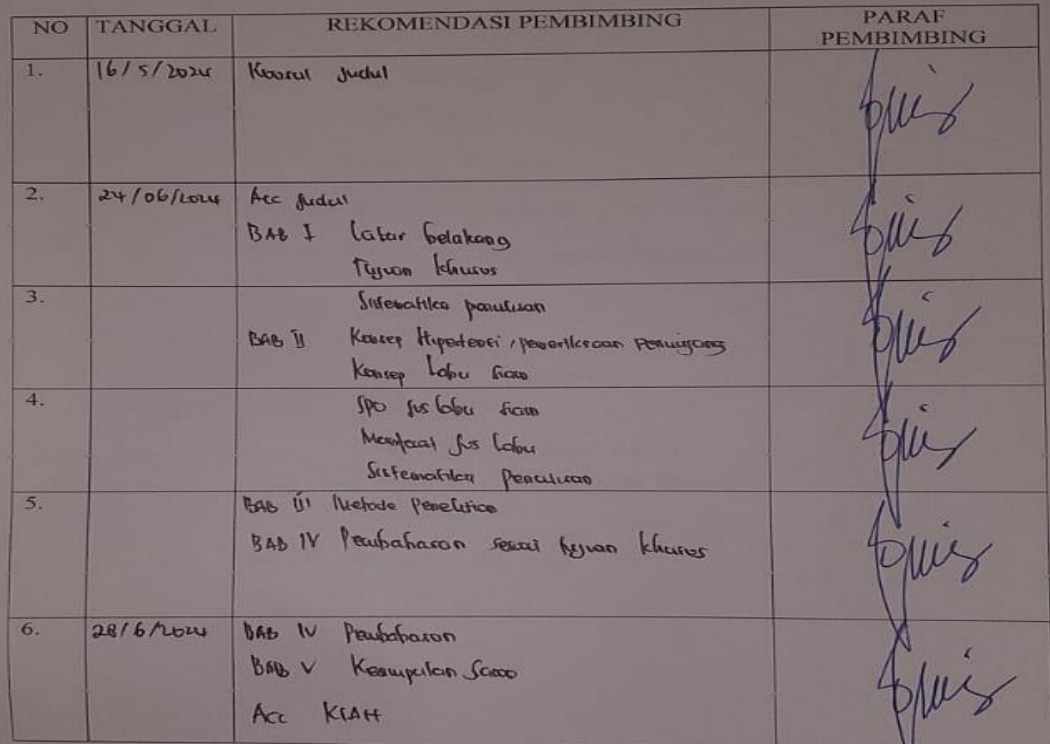 NO TANGGAL REKOMENDASI PEMBIMBING PARAF PEMBIMBING
1. 16/5/2024 Konsul Judul
2. 24/06/2024 Acc Judul
BAB I Latar belakang
Tujuan khusus
3. Sistematika penulisan
BAB II Konsep Hipertensi, pemeriksaan penunjang
Konsep Labu Siam
4. SPO Jus labu siam
Manfaat Jus Labu
Sistematika Penulisan
5. BAB III Metode Penelitian
BAB IV Pembahasan sesuai tujuan khusus
6. 28/6/2024 BAB IV Pembahasan
BAB V Kesimpulan Saran
Acc KIAH